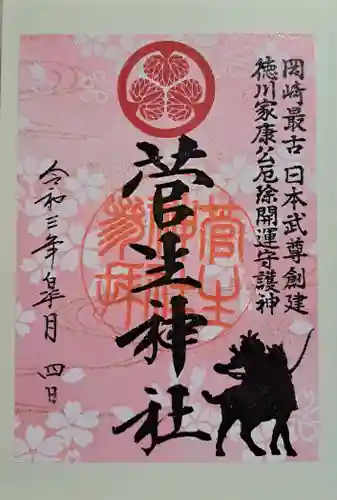 岡崎最古 日本武尊創建
徳川家康公厄除開運守護神
菅生神社
令和三年 皐月 四日